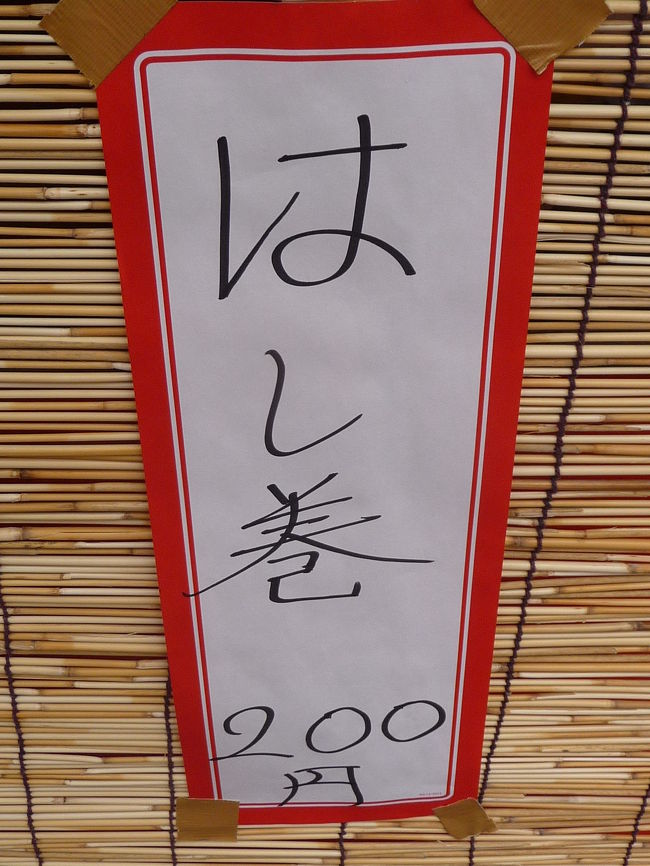 はし巻
200
円